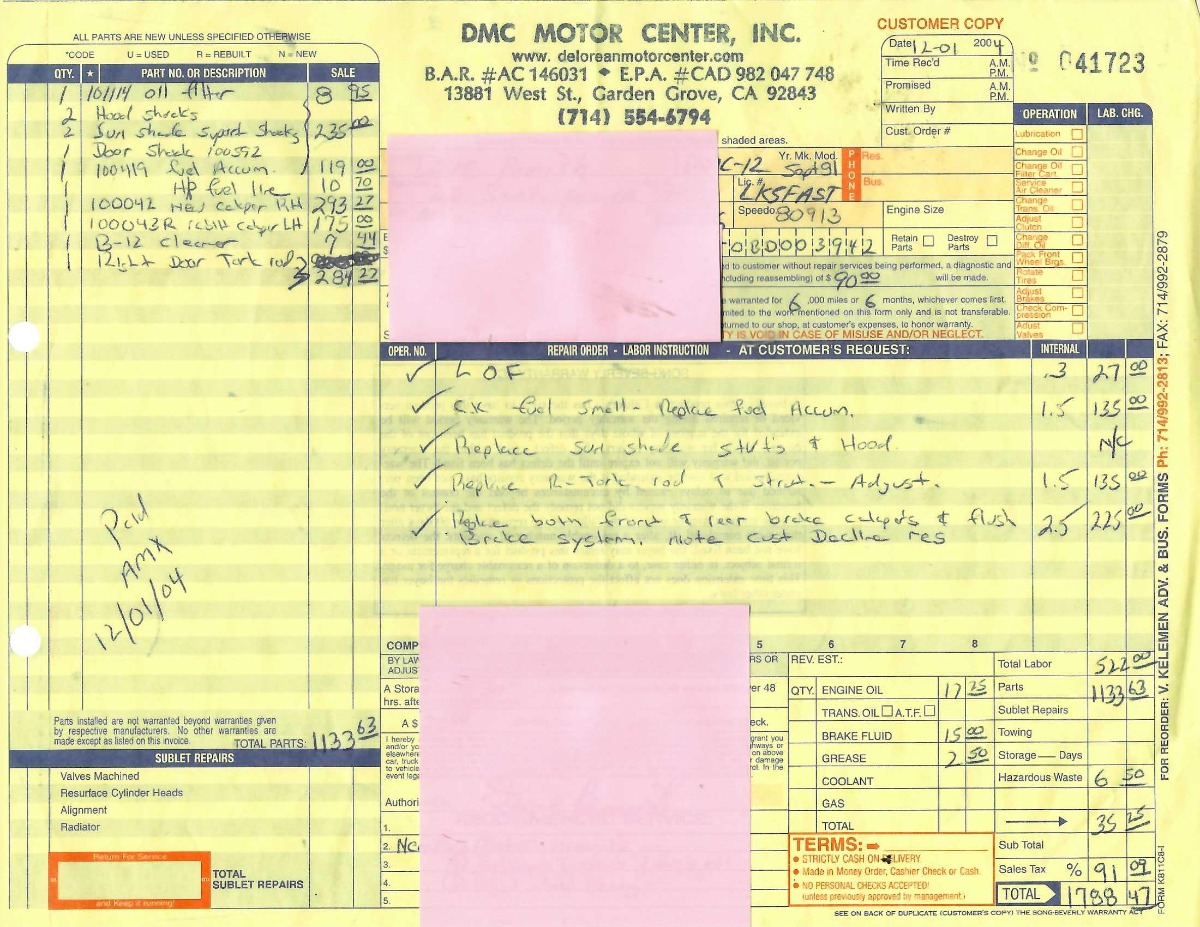 ALL PARTS ARE NEW UNLESS SPECIFIED OTHERWISE
*CODE U = USED R = REBUILT N = NEW
QTY. ★ PART NO. OR DESCRIPTION SALE
1 101114 oil filter 8 95
2 Hood shocks
2 Sun shade Suport Shocks 235 00
1 Door Shock 100592
1 100419 fuel Accum. 119 00
1 HP fuel line 10 70
1 100042 New caliper RH 293 27
1 100043R rebilt caliper LH 175 00
1 B-12 Cleaner 7 44
1 Door Tork rod 284 22
Paid
AMX
12/01/04
Parts installed are not warranted beyond warranties given
by respective manufacturers. No other warranties are
made except as listed on this invoice.
TOTAL PARTS: 1133 63
SUBLET REPAIRS
Valves Machined
Resurface Cylinder Heads
Alignment
Radiator
Return For Service
and Keep it running!
TOTAL
SUBLET REPAIRS
DMC MOTOR CENTER, INC.
www.deloreanmotorcenter.com
B.A.R. #AC 146031 • E.P.A. #CAD 982 047 748
13881 West St., Garden Grove, CA 92843
(714) 554-6794
shaded areas.
CUSTOMER COPY
Date 12-01 2004
Time Rec'd A.M. P.M.
Promised A.M. P.M.
Written By
Cust. Order #
Nº 041723
Yr. Mk. Mod.
C-12 Sept 81
PHONE Res.
Bus.
Lic. #
LKSFAST
Speedo. 80913
Engine Size
0BD003942
Retain Parts Destroy Parts
ed to customer without repair services being performed, a diagnostic and
including reassembling) of $ 90.00 will be made.
warranted for 6,000 miles or 6 months, whichever comes first.
limited to the work mentioned on this form only and is not transferable.
eturned to our shop, at customer's expenses, to honor warranty.
TY IS VOID IN CASE OF MISUSE AND/OR NEGLECT.
OPERATION LAB. CHG.
Lubrication
Change Oil
Change Oil Filter Cart.
Service Air Cleaner
Change Trans. Oil
Adjust Clutch
Change Diff. Oil
Pack Front Wheel Brgs.
Rotate Tires
Adjust Brakes
Check Compression
Adjust Valves
OPER. NO. REPAIR ORDER - LABOR INSTRUCTION - AT CUSTOMER'S REQUEST: INTERNAL
✓ L O F .3 27 00
✓ C.K fuel Smell - Replace fuel Accum. 1.5 135 00
✓ Replace Sun shade struts & Hood. N/C
✓ Replace R-Tork rod & Strut. - Adjust. 1.5 135 00
✓ Replace both front & rear brake calipers & flush 2.5 225 00
Brake system. note cust Decline res
COMP 5 6 7 8
BY LAW
ADJUS
RS OR
A Stora
ver 48
hrs. afte
A $
eck.
I hereby
and/or yo
elsewhere
car, truck
to vehicle
event lega
grant you
ghways or
on above
or damage
d. In the
Authori
1.
2. No
3.
4.
5.
REV. EST.:
QTY. ENGINE OIL 17 25
TRANS. OIL A.T.F.
BRAKE FLUID 15 00
GREASE 2 50
COOLANT
GAS
TOTAL
TERMS:
• STRICTLY CASH ON DELIVERY.
• Made in Money Order, Cashier Check or Cash.
• NO PERSONAL CHECKS ACCEPTED!
(unless previously approved by management.)
Total Labor 522 00
Parts 1133 63
Sublet Repairs
Towing
Storage — Days
Hazardous Waste 6 50
35 25
Sub Total
Sales Tax % 91 09
TOTAL 1788 47
SEE ON BACK OF DUPLICATE (CUSTOMER'S COPY) THE SONG-BEVERLY WARRANTY ACT
FOR REORDER: V. KELEMEN ADV. & BUS. FORMS Ph: 714/992-2813; FAX: 714/992-2879
FORM K811C8-I